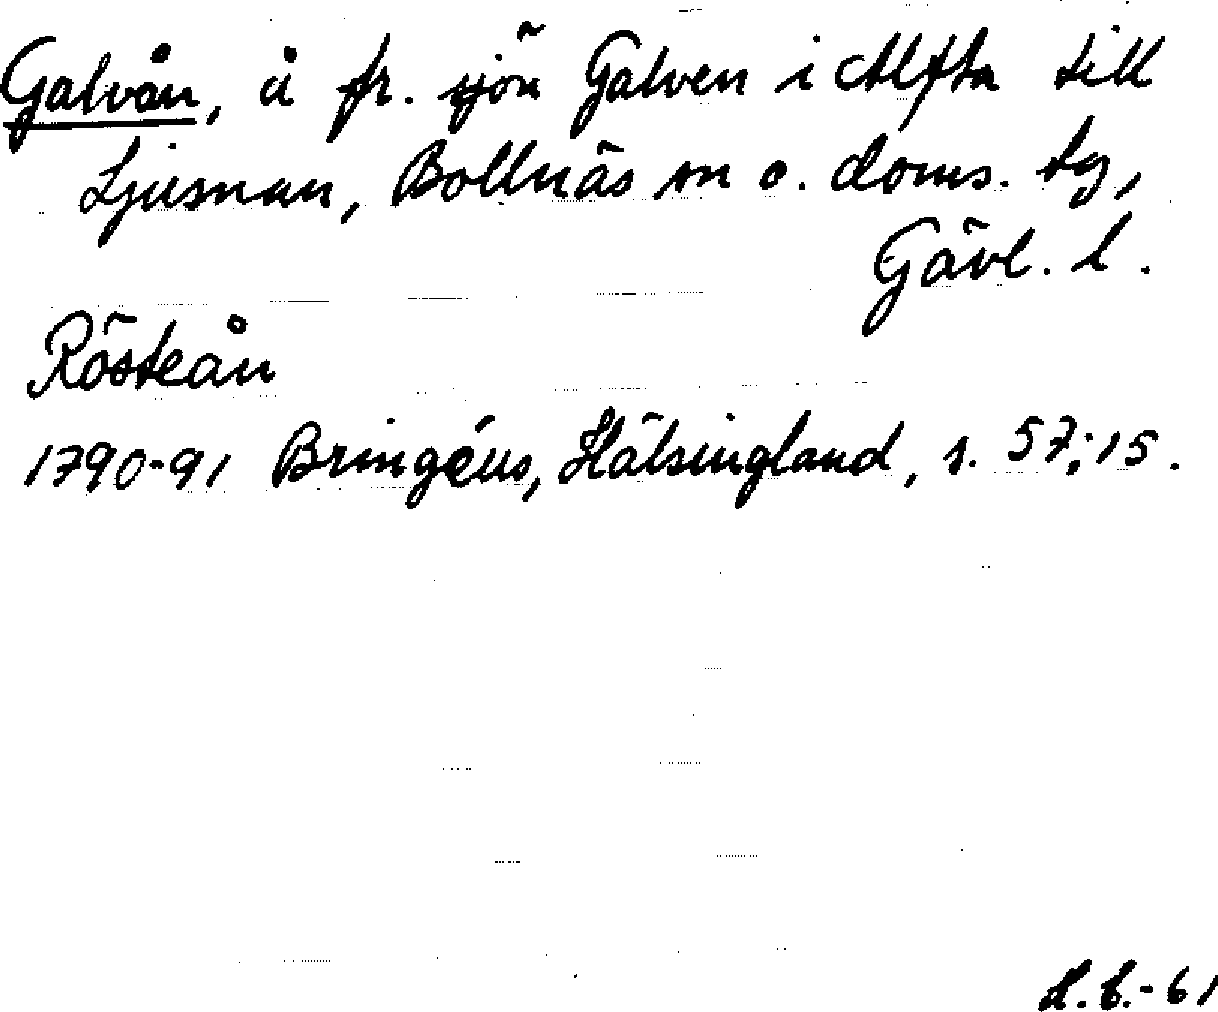 Galvån, å fr. sjön Galven i Alfta till
Ljusnan, Bollnäs sn o. doms. tg,
Gävl. l.
Rösteån
1790-91 Bringéus, Hälsingland, s. 57; 15.